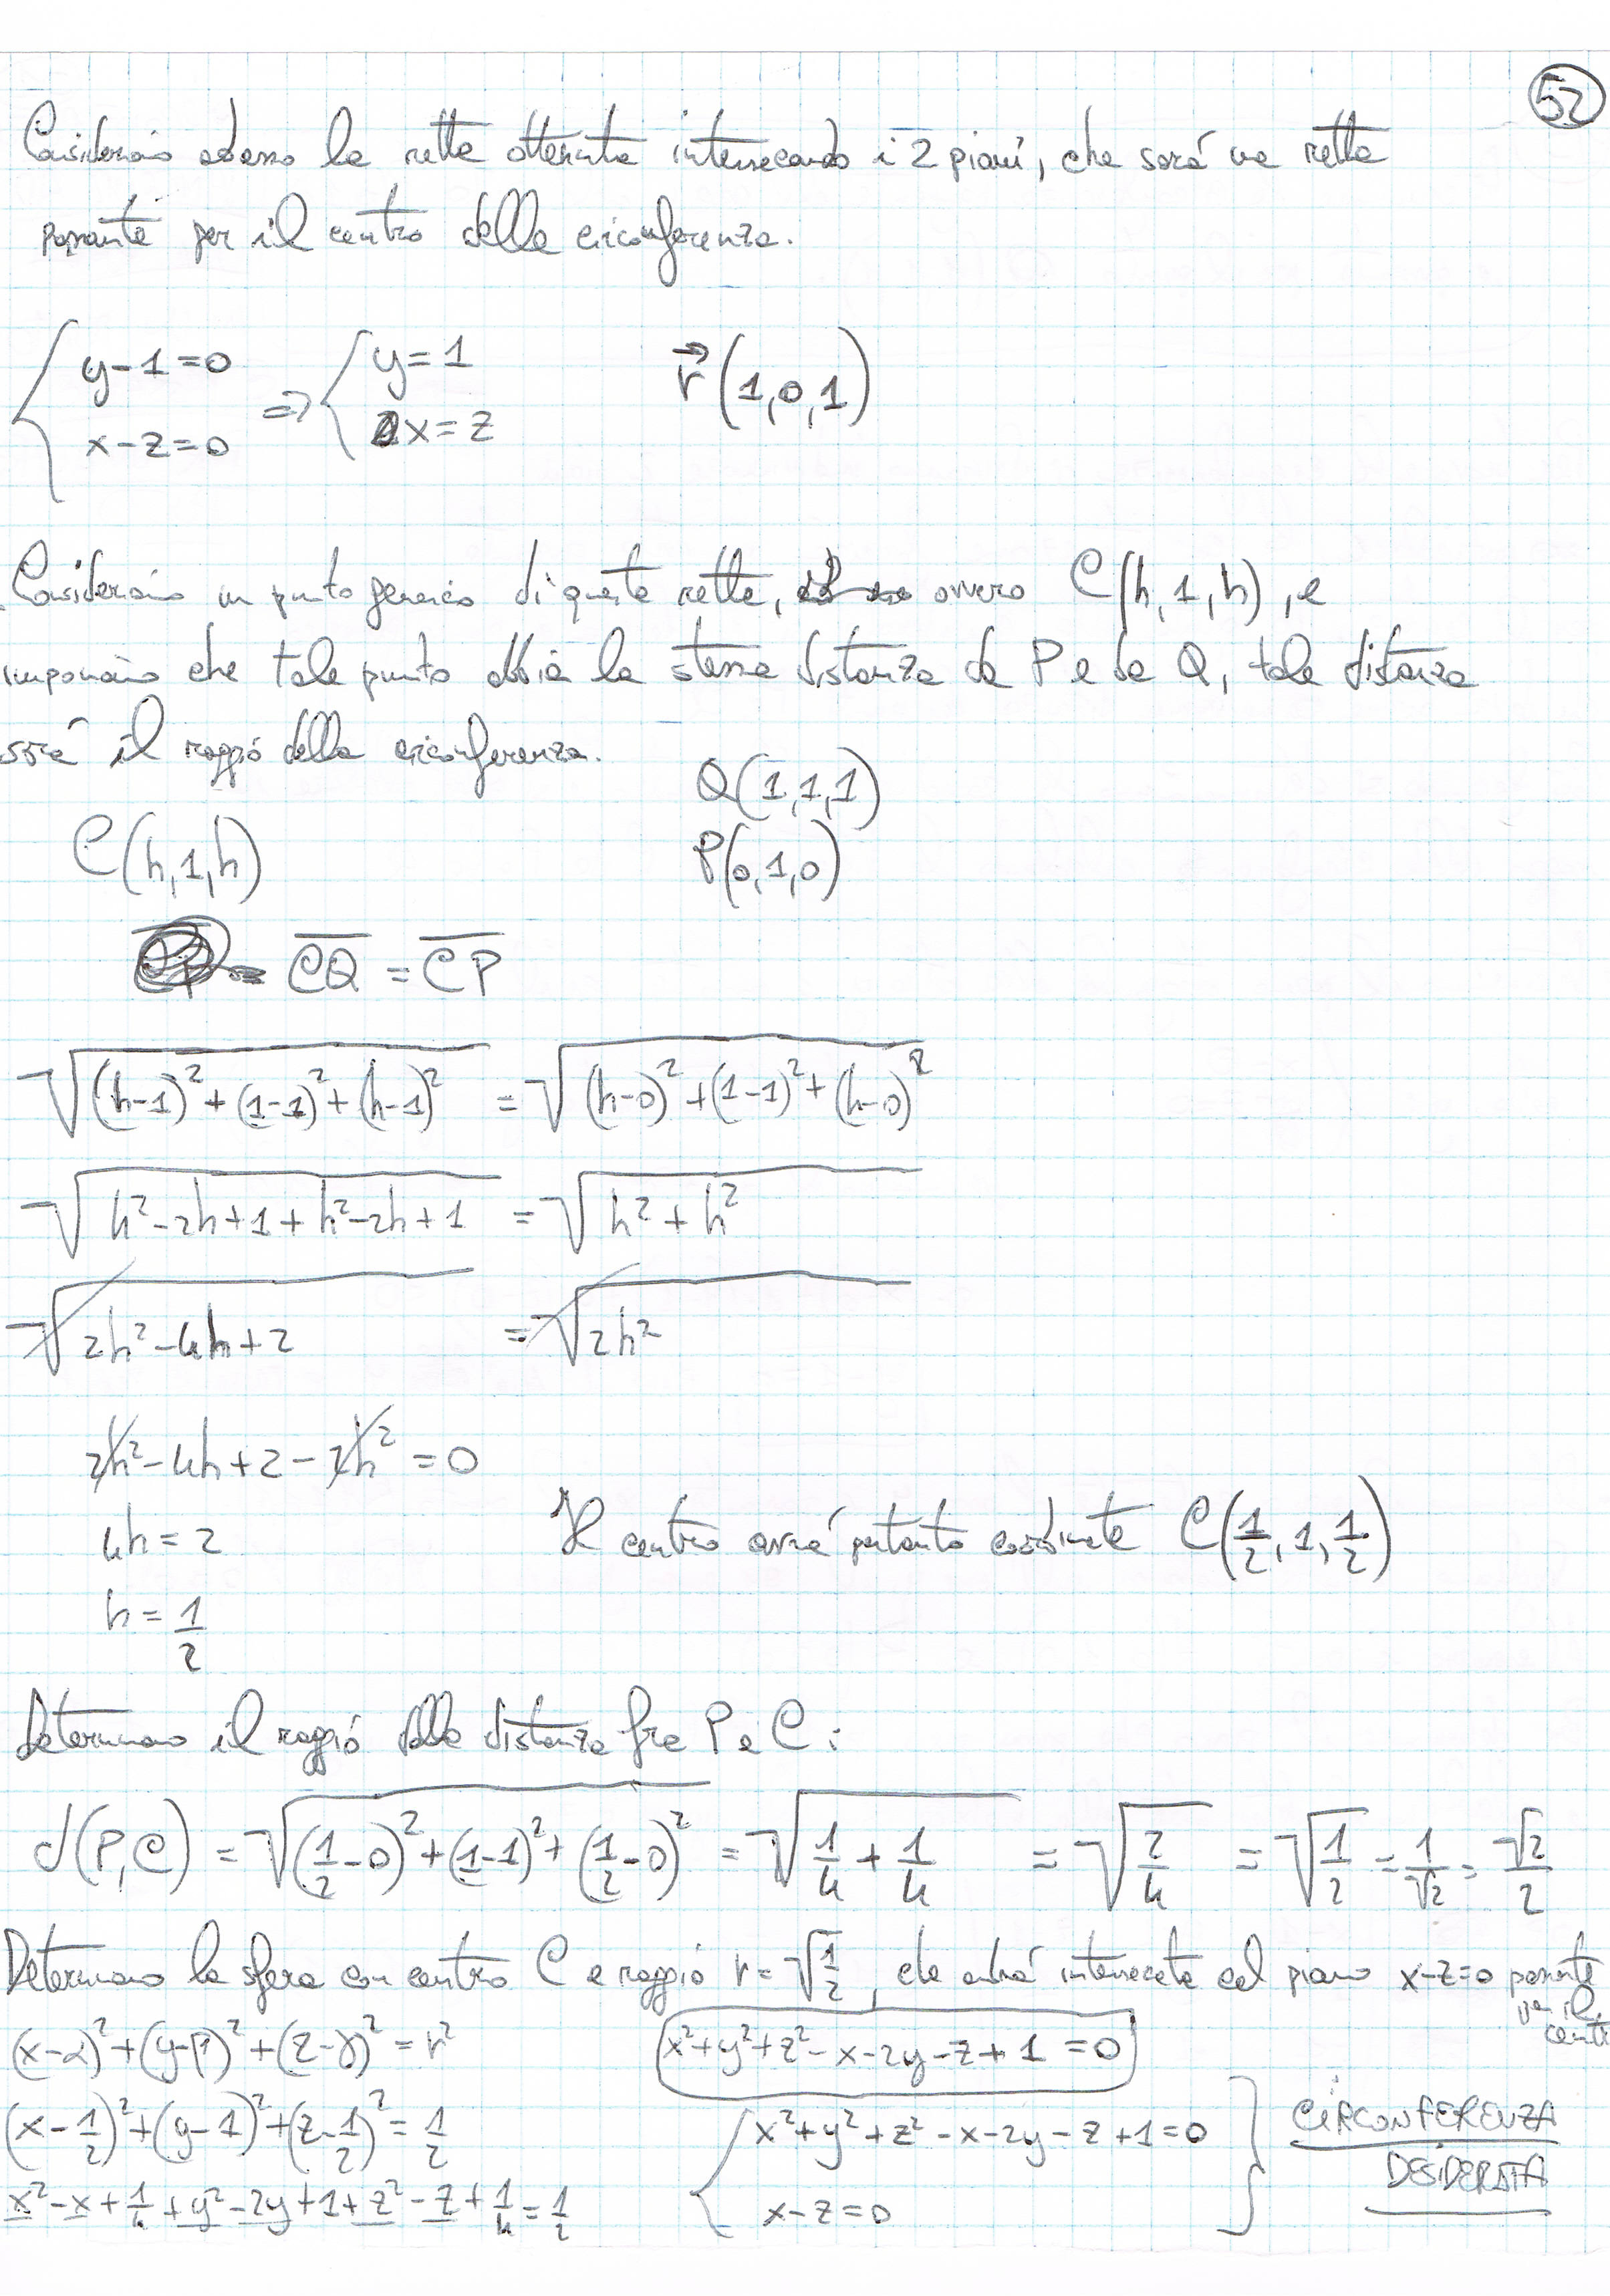 52
Consideriamo adesso la retta ottenuta intersecando i 2 piani, che sarà una retta
passante per il centro della circonferenza.
{ y-1=0 => { y=1 r⃗(1,0,1)
{ x-z=0 { x=z
Consideriamo un punto generico di questa retta, ovvero C(h,1,h), e
imponiamo che tale punto abbia la stessa distanza da P e da Q, tale distanza
sarà il raggio della circonferenza.
Q(1,1,1)
C(h,1,h) P(0,1,0)
CQ = CP
√((h-1)²+(1-1)²+(h-1)²) = √((h-0)²+(1-1)²+(h-0)²)
√(h²-2h+1+h²-2h+1) = √(h²+h²)
√(2h²-4h+2) = √(2h²)
2h²-4h+2-2h²=0
4h=2 Il centro avrà pertanto coordinate C(1/2,1,1/2)
h=1/2
Determiniamo il raggio dalla distanza fra P e C:
d(P,C) = √((1/2-0)²+(1-1)²+(1/2-0)²) = √(1/4+1/4) = √(2/4) = √(1/2) = 1/√2 = √2/2
Determiniamo la sfera con centro C e raggio r=√(1/2), che andrà intersecata col piano x-z=0 passante
per il
centro
(x-α)²+(y-β)²+(z-γ)²=r² x²+y²+z²-x-2y-z+1=0
(x-1/2)²+(y-1)²+(z-1/2)²=1/2 { x²+y²+z²-x-2y-z+1=0 } CIRCONFERENZA
x²-x+1/4+y²-2y+1+z²-z+1/4=1/2 { x-z=0 } DESIDERATA